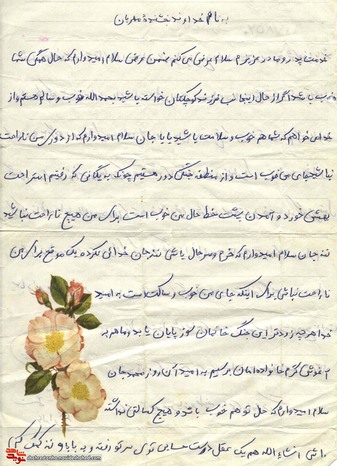 به نام خداوند بخشندهٔ مهربان
خدمت پدر و مادر عزیزم سلام عرض می کنم ضمن عرض سلام امیدوارم که حال همگی شما
خوب باشد اگر از حال اینجانب فرزند کوچکتان خواسته باشید بحمدالله خوب و سالم هستم و از
خدا می خواهم که شما هم خوب و سلامت باشید بابا جان سلام امیدوارم که از دوری من ناراحت
نباشید جای من خوب است و از منطقه جنگی دور هستیم چونکه به یگانی که رفتیم استراحت
بهشون خورد و آمدن پشت خط حال من خوب است برای من هیچ ناراحت نباشید
ننه جان سلام امیدوارم که خرم و سرحال باشی ننه جان خدائی نکرده یک موقع برای من
ناراحت نباشی برای اینکه جای من خوب و ساکت است به امید
خدا هر چه زودتر این جنگ خانمان سوز پایان یابد و ما هم به
آغوش گرم خانواده امان برسیم به امید آن روز محمد جان
سلام امیدوارم که حال تو هم خوب باشد و هیچ کسالتی نداشته
باشی انشاءالله هم یک عقل درست حسابی توی سر تو رفته و به بابا و ننه کمک کنی